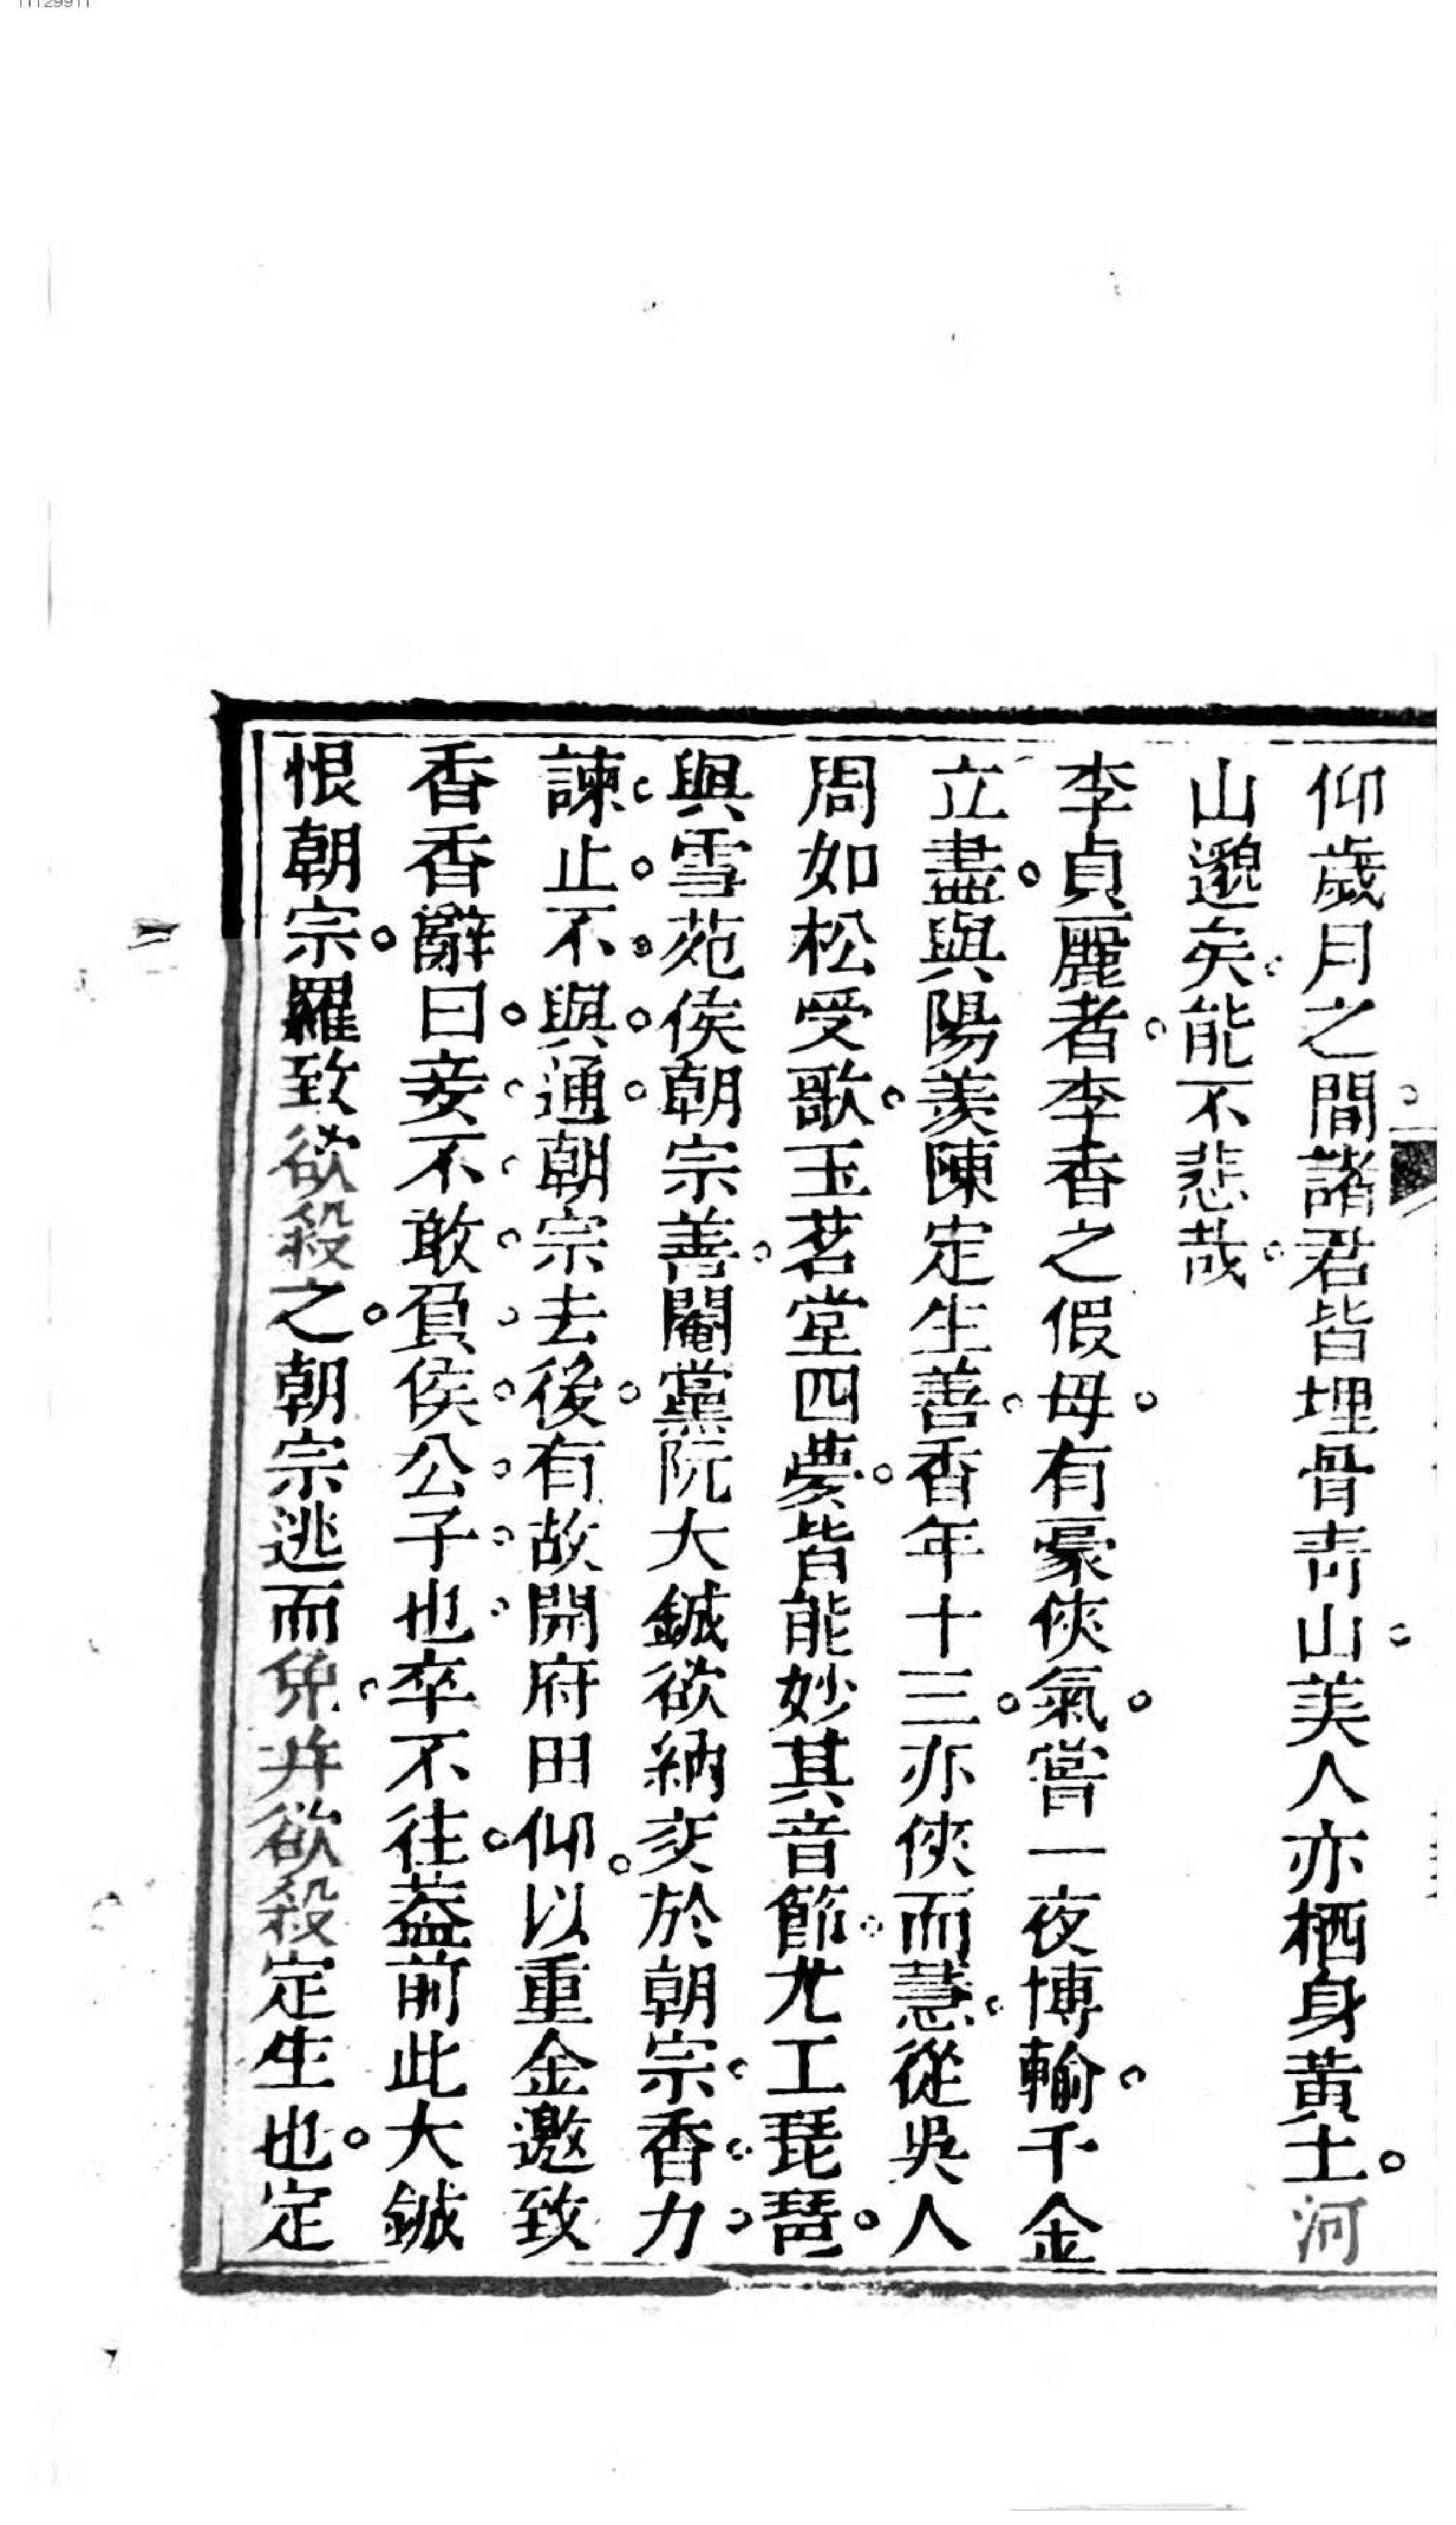 仰歲月之間諸君皆埋骨靑山美人亦栖身黃土。河
山邈矣。能不悲哉。
李貞麗者。李香之假母。有豪俠氣。嘗一夜博輸。千金
立盡。與陽羨陳定生善。香年十三。亦俠而慧。從吳人
周如松受歌。玉茗堂四夢。皆能妙其音節。尤工琵琶。
與雪苑侯朝宗善。閹黨阮大鋮欲納交於朝宗。香力
諫。止。不。與。通。朝宗去後。有故開府田仰。以重金邀致
香。香辭曰。妾。不。敢。負。侯。公。子。也。卒不往。葢前此大鋮
恨朝宗。羅致欲殺之。朝宗逃而免。并欲殺定生也。定